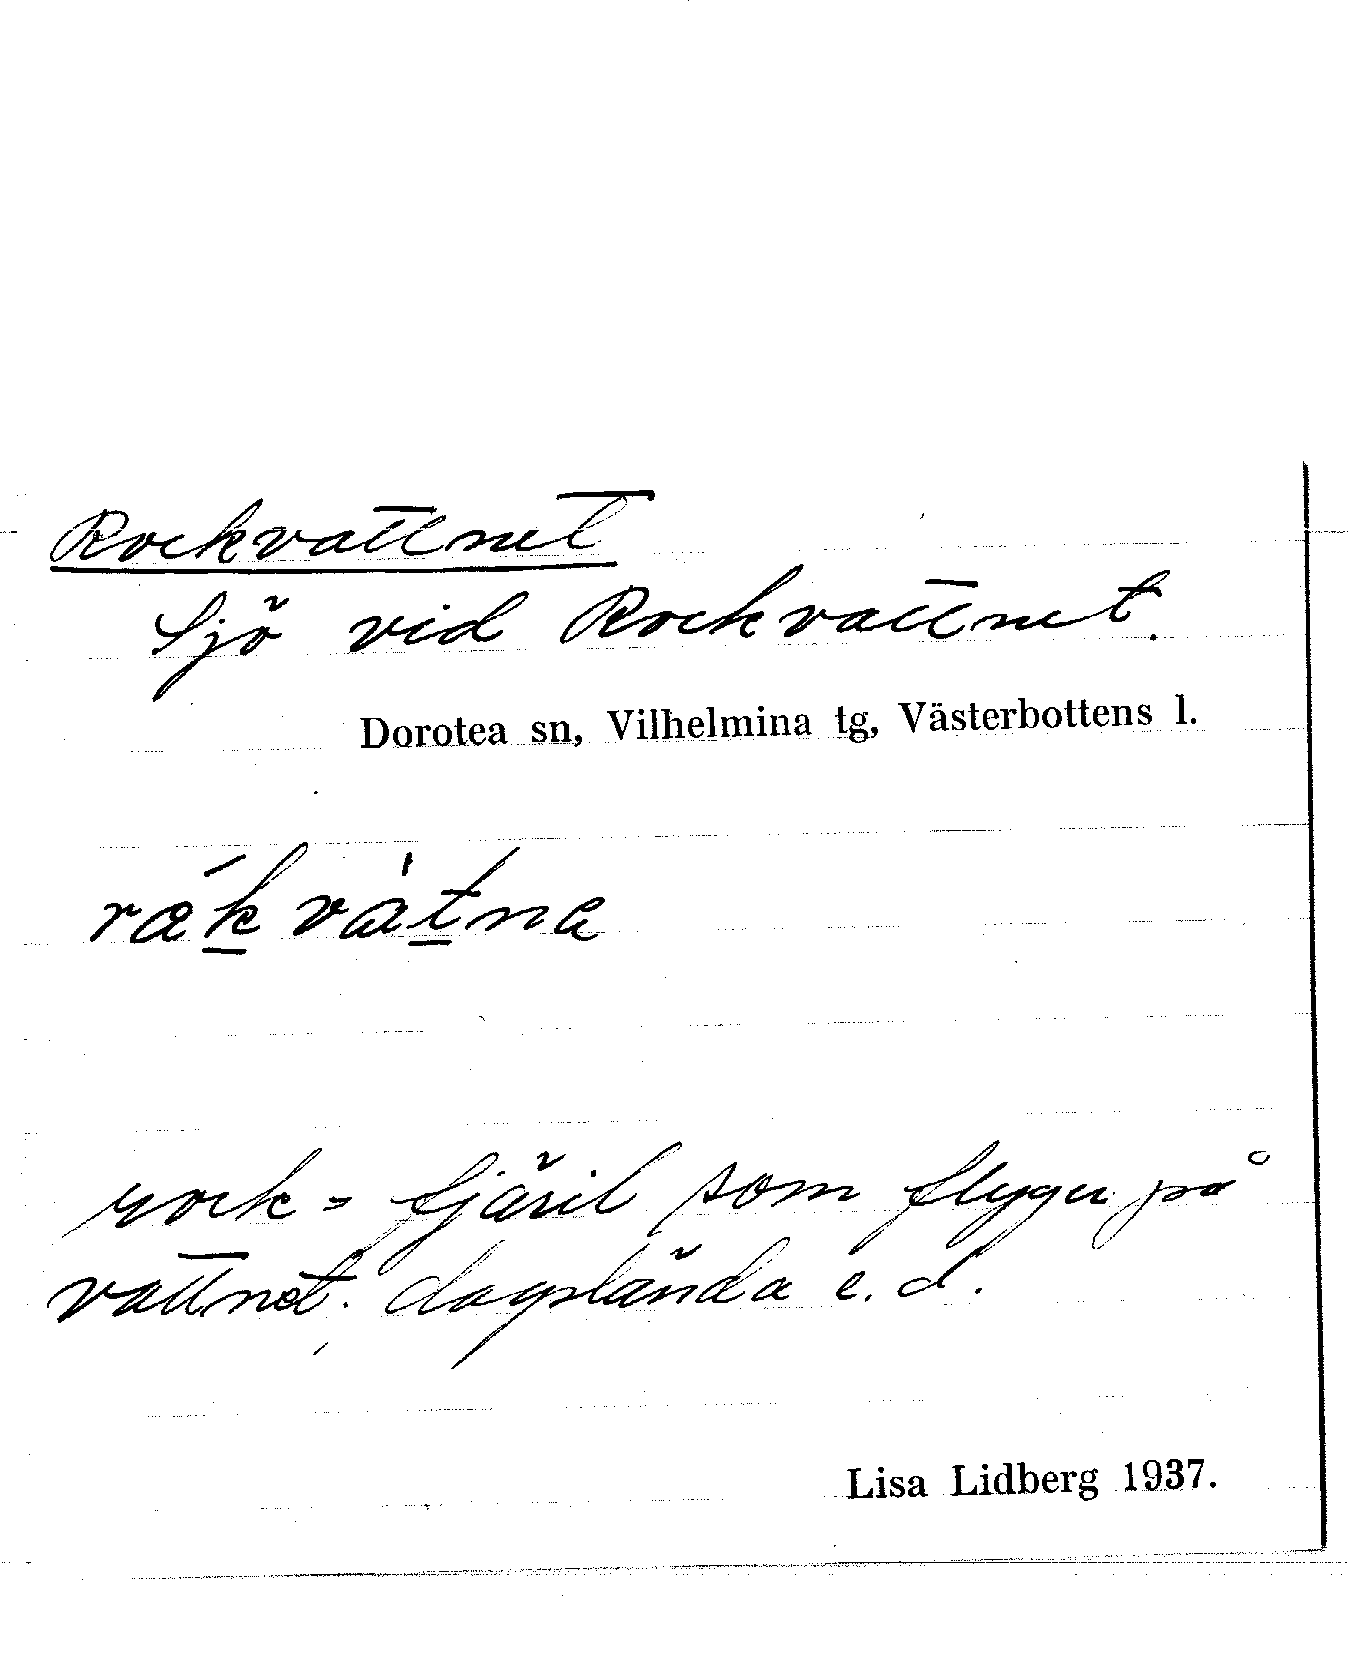 Rockvattnet
Sjö vid Rockvattnet.
Dorotea sn, Vilhelmina tg, Västerbottens l.
rock = fjäril som flyger på
vattnet. dagslända e. d.
Lisa Lidberg 1937.